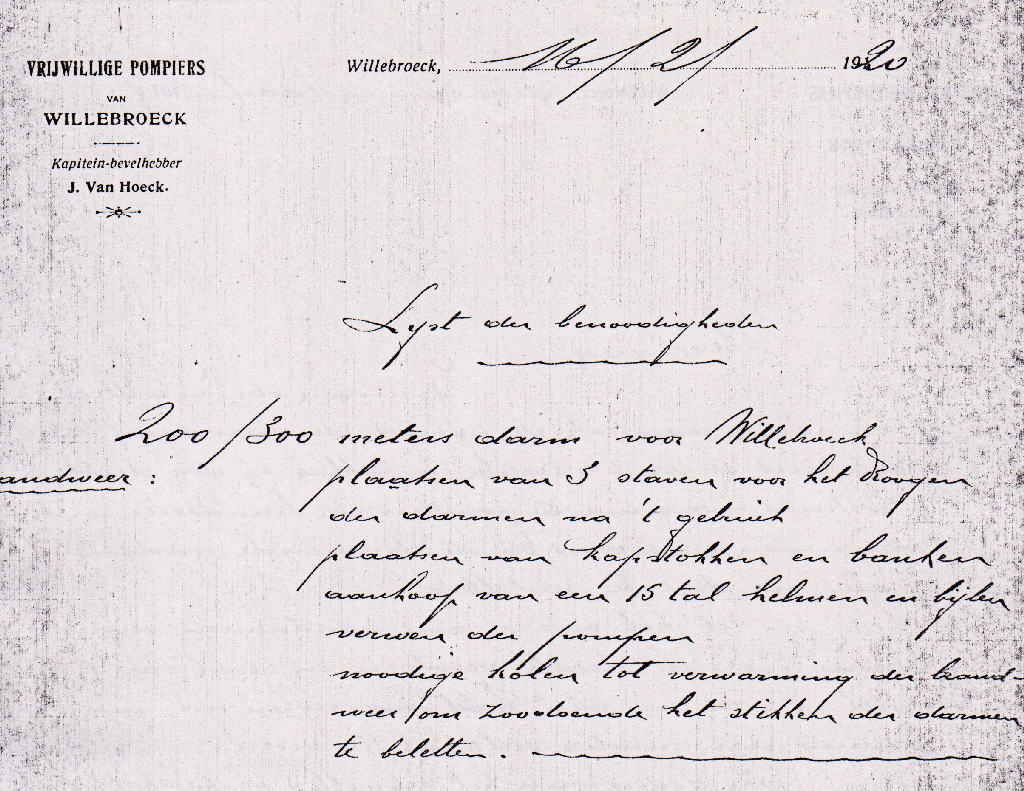 VRIJWILLIGE POMPIERS
VAN
WILLEBROECK
Kapitein-bevelhebber
J. Van Hoeck.
Willebroeck, 16/2/ 1920
Lyst der benoodigheden
200/300 meters darm voor Willebroeck
andweer : plaatsen van 3 staven voor het Droogen
der darmen na 't gebruik
plaatsen van kapstokken en banken
aankoop van een 15 tal helmen en bijlen
verwen der pompen
noodige kolen tot verwarming der brand-
weer/om zoodoende het stikken der darmen
te beletten.